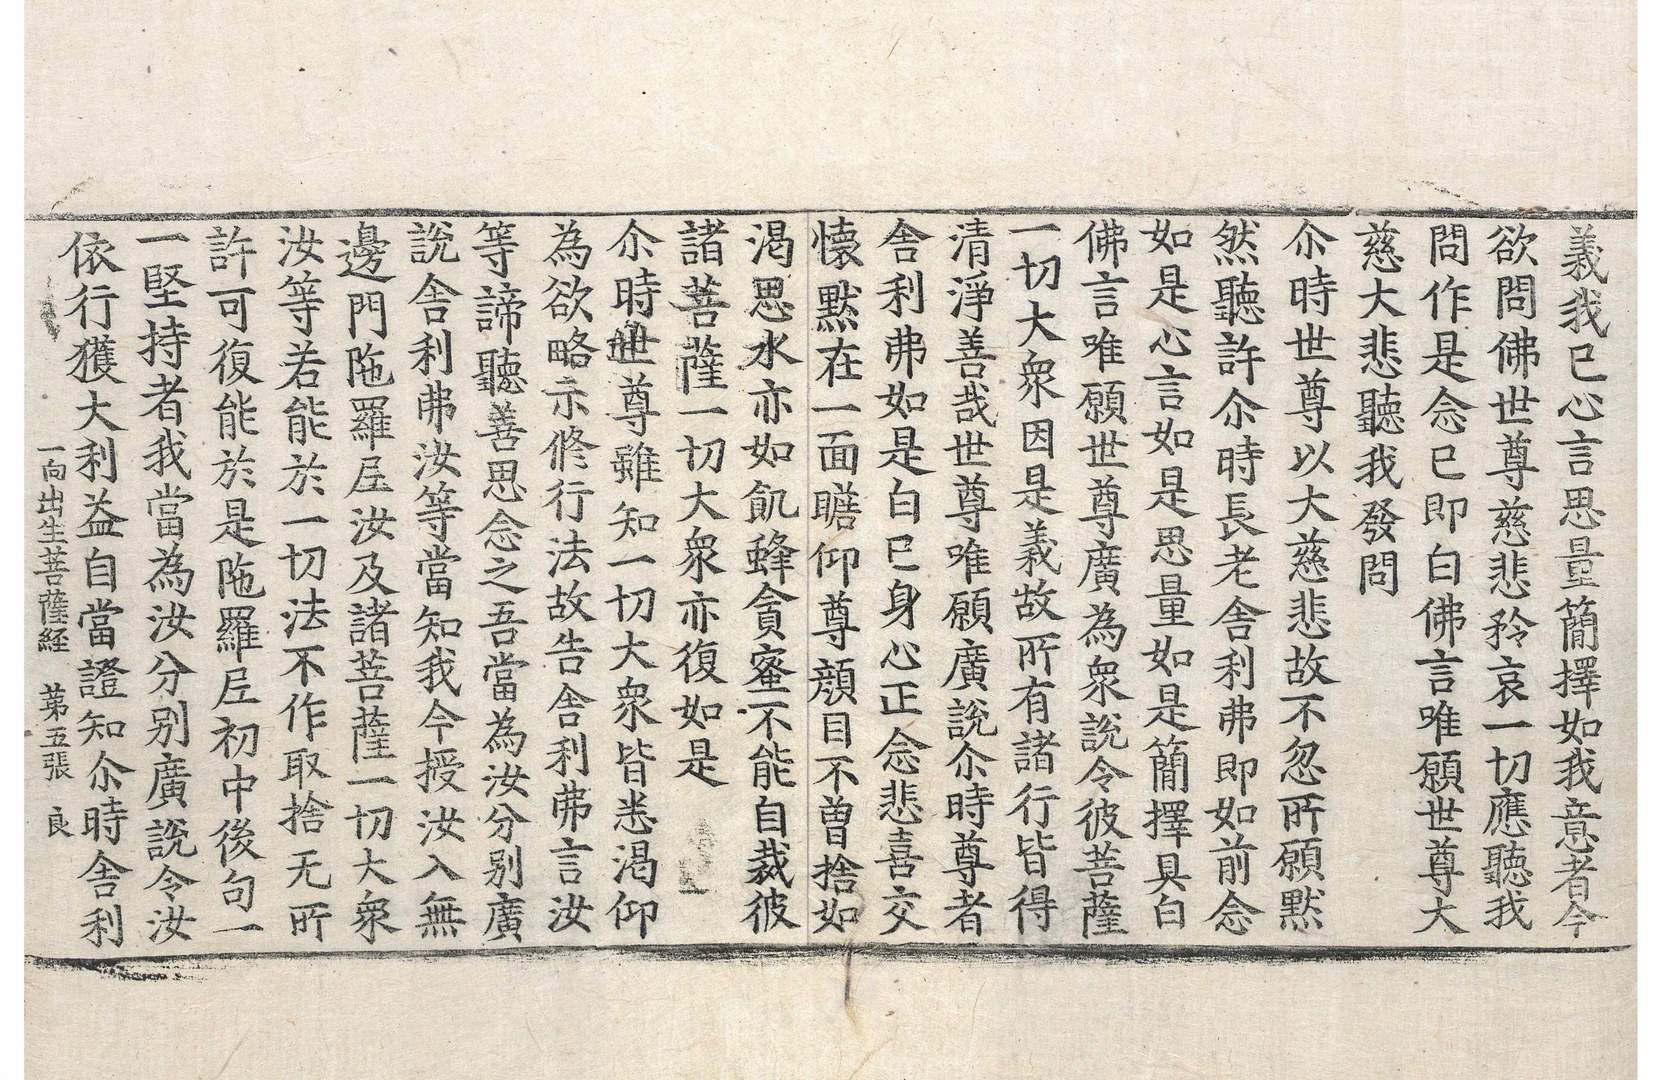 義我已心言思量簡擇如我意者今
欲問佛世尊慈悲矜哀一切應聽我
問作是念已即白佛言唯願世尊大
慈大悲聽我發問
尒時世尊以大慈悲故不忽所願默
然聽許尒時長老舍利弗即如前念
如是心言如是思量如是簡擇具白
佛言唯願世尊廣為衆說令彼菩薩
一切大衆因是義故所有諸行皆得
清淨善哉世尊唯願廣說尒時尊者
舍利弗如是白已身心正念悲喜交
懷默在一面瞻仰尊顔目不曾捨如
渴思水亦如飢蜂貪蜜不能自裁彼
諸菩薩一切大衆亦復如是
尒時世尊雖知一切大衆皆悉渴仰
為欲略示修行法故告舍利弗言汝
等諦聽善思念之吾當為汝分别廣
說舍利弗汝等當知我今授汝入無
邊門陁羅𡰱汝及諸菩薩一切大衆
汝等若能於一切法不作取捨无所
許可復能於是陁羅𡰱初中後句一
一堅持者我當為汝分别廣說令汝
依行獲大利益自當證知尒時舍利
一向出生菩薩経 苐五張 良